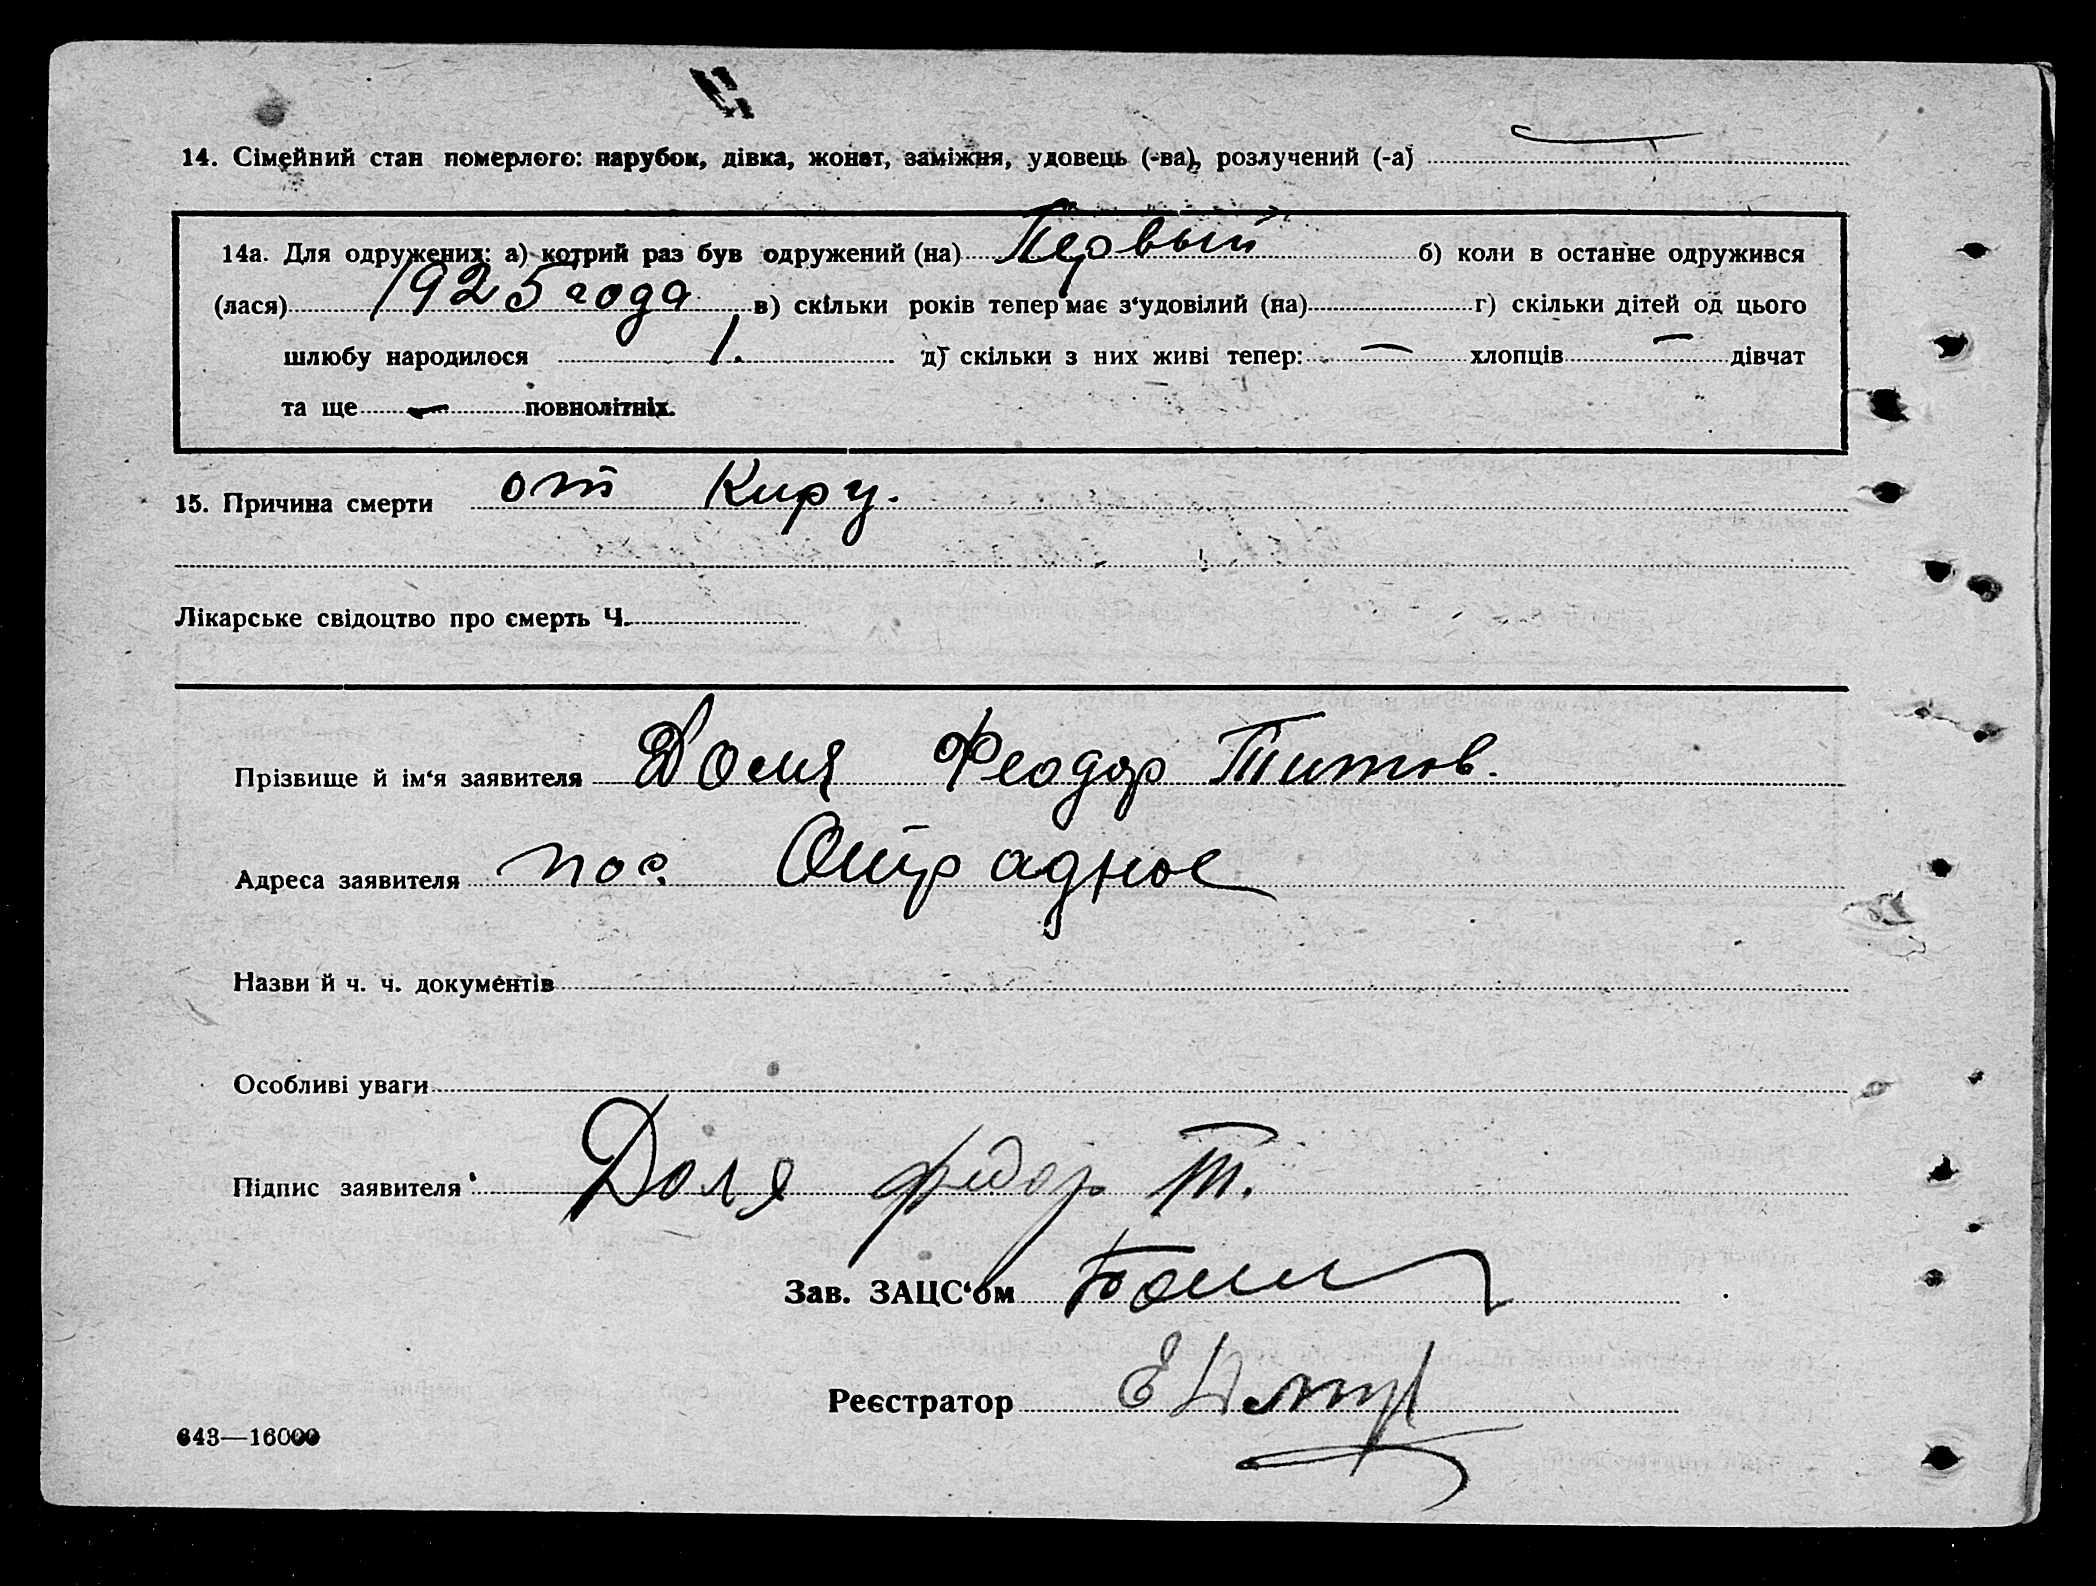 14. Сімейний стан померлого: парубок, дівка, жонат, заміжня, удовець (-ва), розлучений (-а)
14а. Для одружених: а) котрий раз був одружений (на) Первый б) коли в останнє одружився
(лася) 1925 года в) скільки років тепер має з‘удовілий (на) г) скільки дітей од цього
шлюбу народилося 1. д) скільки з них живі тепер: — хлопців — дівчат
та ще — повнолітніх.
15. Причина смерти от Киру.
Лікарське свідоцтво про смерть Ч.
Прізвище й ім‘я заявителя Доля Феодор Титов.
Адреса заявителя пос. Отрадное
Назви й ч. ч. документів
Особливі уваги
Підпис заявителя Доля федор Т.
Зав. ЗАЦС‘ом
Реєстратор
643—16000